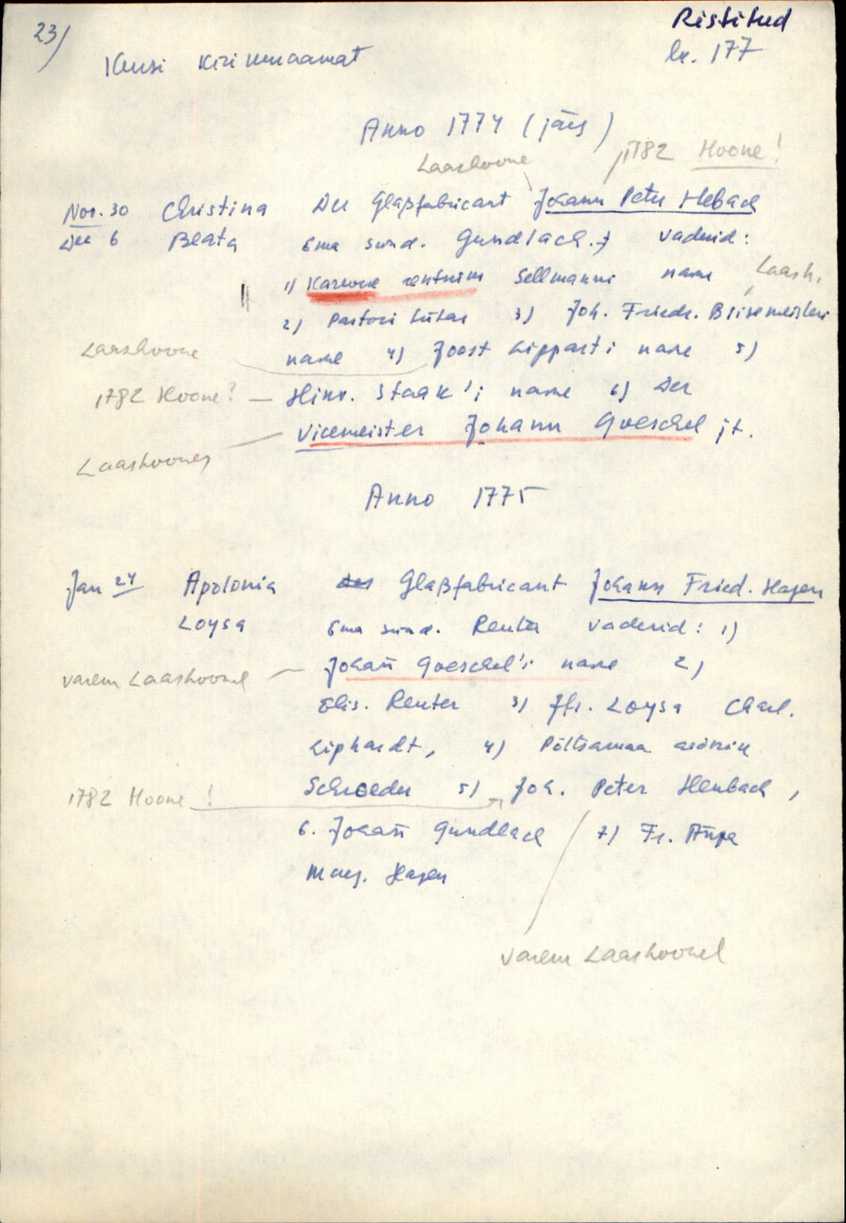 23/
Ristitud
lk. 177
Kursi Kirikuraamat
Anno 1774 (järg)
Laashoone
1782 Hoone!
Nov. 30 Christina Der Glaßfabricant Johann Peter Hebach
Dec 6 Beata Ema sünd. Gundlach. Vaderid:
1) Karwone rentniku Sellmanni naine Laash.
2) Pastori tütar 3) Joh. Friedr. Brisemeisteri
Laashoone
naine 4) Joost Lipparti naine 5)
1782 Hoone? — Hinr. Staak'i naine 6) Der
Vicemeister Johann Goeschel jr.
Laashoones
Anno 1775
Jan 24 Apolonia der Glaßfabricant Johann Fried. Hagen
Loysa Ema sünd. Renter Vaderid: 1)
varem Laashoonel — Johan̄ Goeschel'i naine 2)
Elis. Renter 3) Jfr. Loysa Charl.
Liphardt, 4) Põltsamaa
1782 Hoone! Schroeder 5) Joh. Peter Heubach,
6. Johan̄ Gundlach 7) Fr. Anna
Marg. Hagen
varem Laashoonel